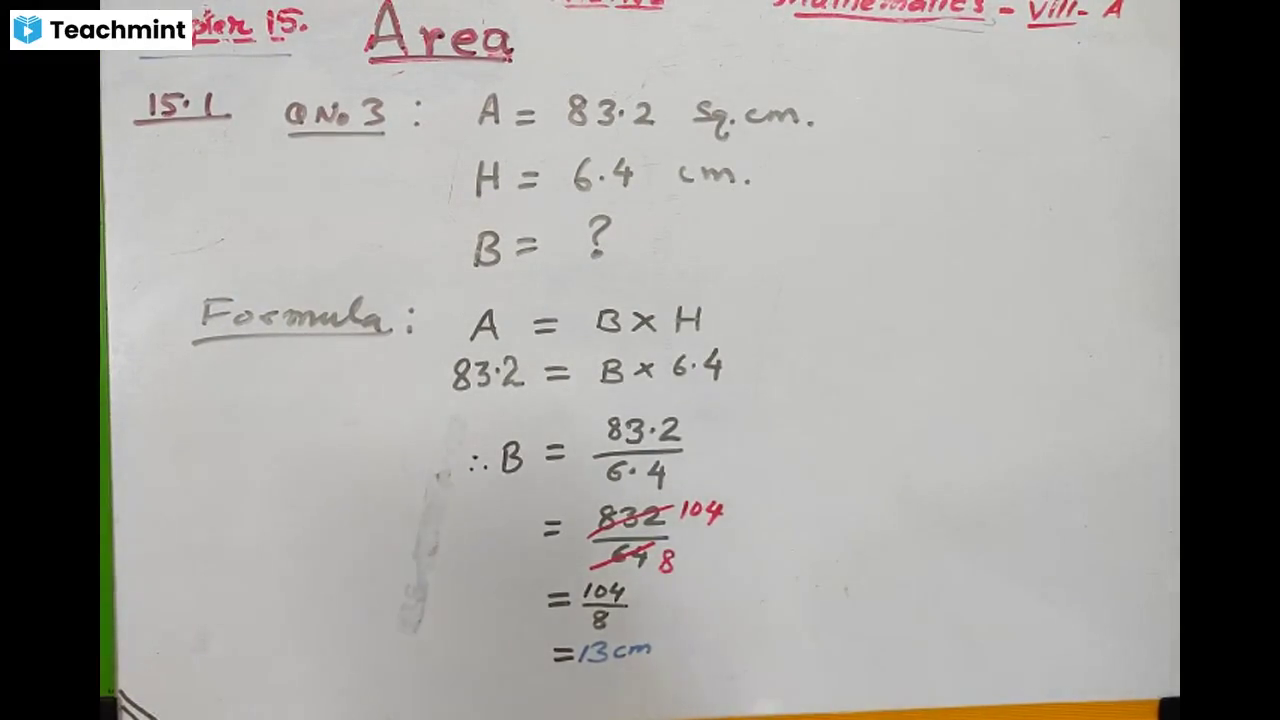 Teachmint
15. Area Mathematics - VIII - A
15.1 Q No 3 : A = 83.2 Sq. cm.
H = 6.4 cm.
B = ?
Formula : A = B × H
83.2 = B × 6.4
∴ B = 83.2 / 6.4
= 832 / 64 104 / 8
= 104 / 8
= 13 cm